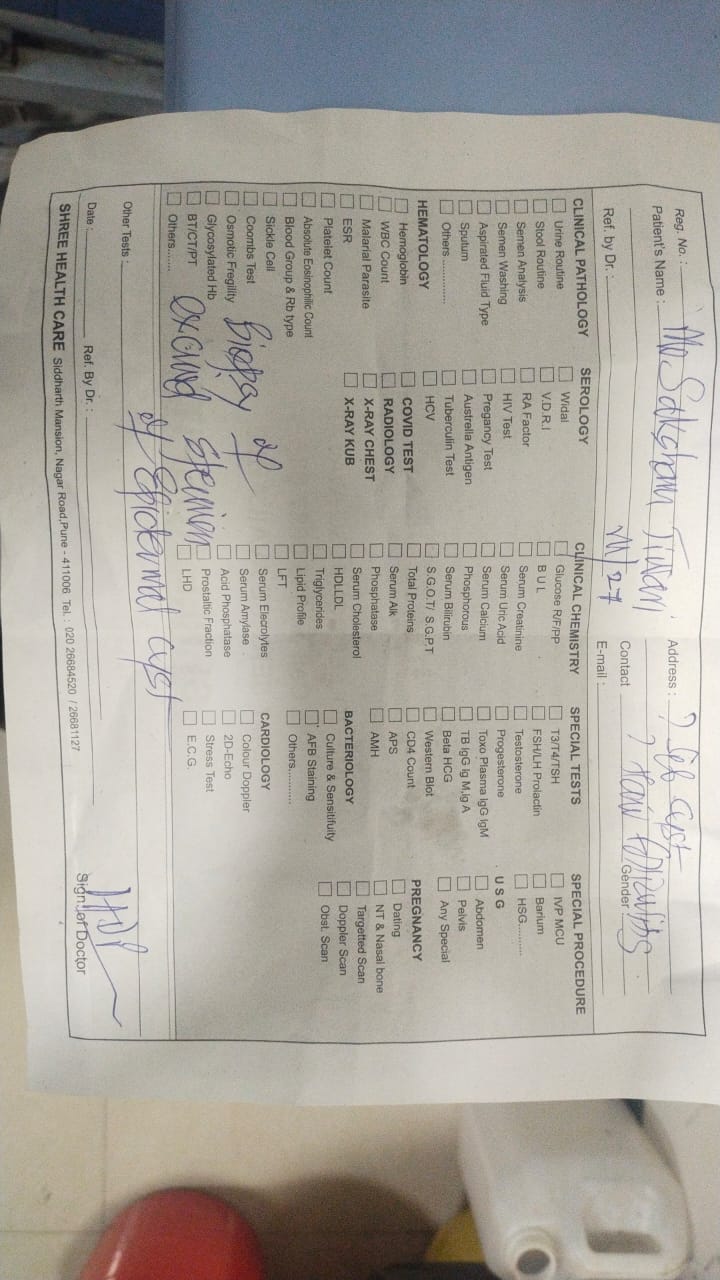 Reg. No. :
Patient's Name : Mr Saksham
M/27
Ref. by Dr. :
Address : ? Seb cyst
Contact ?
Gender
E-mail :
CLINICAL PATHOLOGY
Urine Routine
Stool Routine
Semen Analysis
Semen Washing
Aspirated Fluid Type
Sputum
Others.............
HEMATOLOGY
Hemoglobin
WBC Count
Malarial Parasite
ESR
Platelet Count
Absolute Eosinophilic Count
Blood Group & Rb type
Sickle Cell
Coombs Test
Osmotic Fregility
Glycosylated Hb
BT/CT/PT
Others........
SEROLOGY
Widal
V.D.R.I
RA Factor
HIV Test
Pregancy Test
Australia Antigen
Tuberculin Test
HCV
COVID TEST
RADIOLOGY
X-RAY CHEST
X-RAY KUB
CLINICAL CHEMISTRY
Glucose R/F/PP
B U L
Serum Creatinine
Serum Uric Acid
Serum Calcium
Phosphorous
Serum Bilirubin
S.G.O.T/ S.G.P.T
Total Proteins
Serum Alk
Phosphatase
Serum Cholesterol
HDLLDL
Triglycerides
Lipid Profile
LFT
Serum Elecrolytes
Serum Amylase
Acid Phosphatase
Prostaltic Fraction
LHD
SPECIAL TESTS
T3/T4/TSH
FSH/LH Prolactin
Testosterone
Progesterone
Toxo Plasma IgG IgM
TB IgG Ig M,Ig A
Beta HCG
Western Blot
CD4 Count
APS
AMH
BACTERIOLOGY
Culture & Sensitifuity
AFB Staining
Others...........
CARDIOLOGY
Colour Doppler
2D-Echo
Stress Test
E.C.G
SPECIAL PROCEDURE
IVP MCU
Barium
HSG.........
U S G
Abdomen
Pelvis
Any Special
PREGNANCY
Dating
NT & Nasal bone
Targetted Scan
Doppler Scan
Obst. Scan
Biopsy of
excised
of Epidermal cyst
Other Tests :
Date : Ref. By Dr. :
Sign. of Doctor
SHREE HEALTH CARE Siddharth Mansion, Nagar Road,Pune - 411006 Tel. : 020 26684520 / 26681127